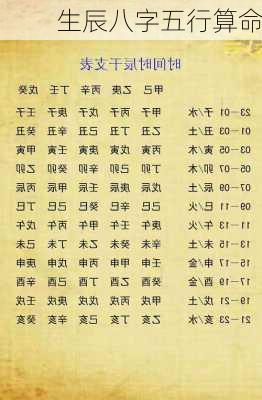 生辰八字五行算命
时间时辰干支表
甲己 乙庚 丙辛 丁壬 戊癸
23—01 子/水 甲子 丙子 戊子 庚子 壬子
01—03 丑/土 乙丑 丁丑 己丑 辛丑 癸丑
03—05 寅/木 丙寅 戊寅 庚寅 壬寅 甲寅
05—07 卯/木 丁卯 己卯 辛卯 癸卯 乙卯
07—09 辰/土 戊辰 庚辰 壬辰 甲辰 丙辰
09—11 巳/火 己巳 辛巳 癸巳 乙巳 丁巳
11—13 午/火 庚午 壬午 甲午 丙午 戊午
13—15 未/土 辛未 癸未 乙未 丁未 己未
15—17 申/金 壬申 甲申 丙申 戊申 庚申
17—19 酉/金 癸酉 乙酉 丁酉 己酉 辛酉
19—21 戌/土 甲戌 丙戌 戊戌 庚戌 壬戌
21—23 亥/水 乙亥 丁亥 己亥 辛亥 癸亥